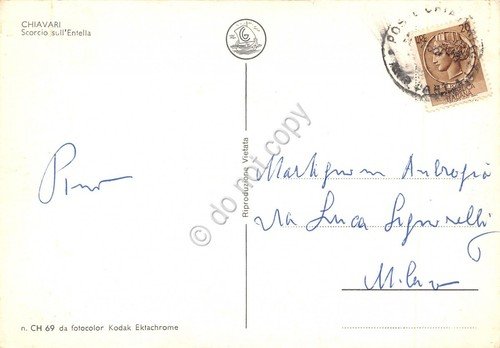 CHIAVARI
Scorcio sull'Entella
POSTE
LIRE 20
ITALIANA
Pino
Riproduzione Vietata
© do not copy
Martignoni Ambrogio
Via Luca Signorelli
Milano
n. CH 69 da fotocolor Kodak Ektachrome